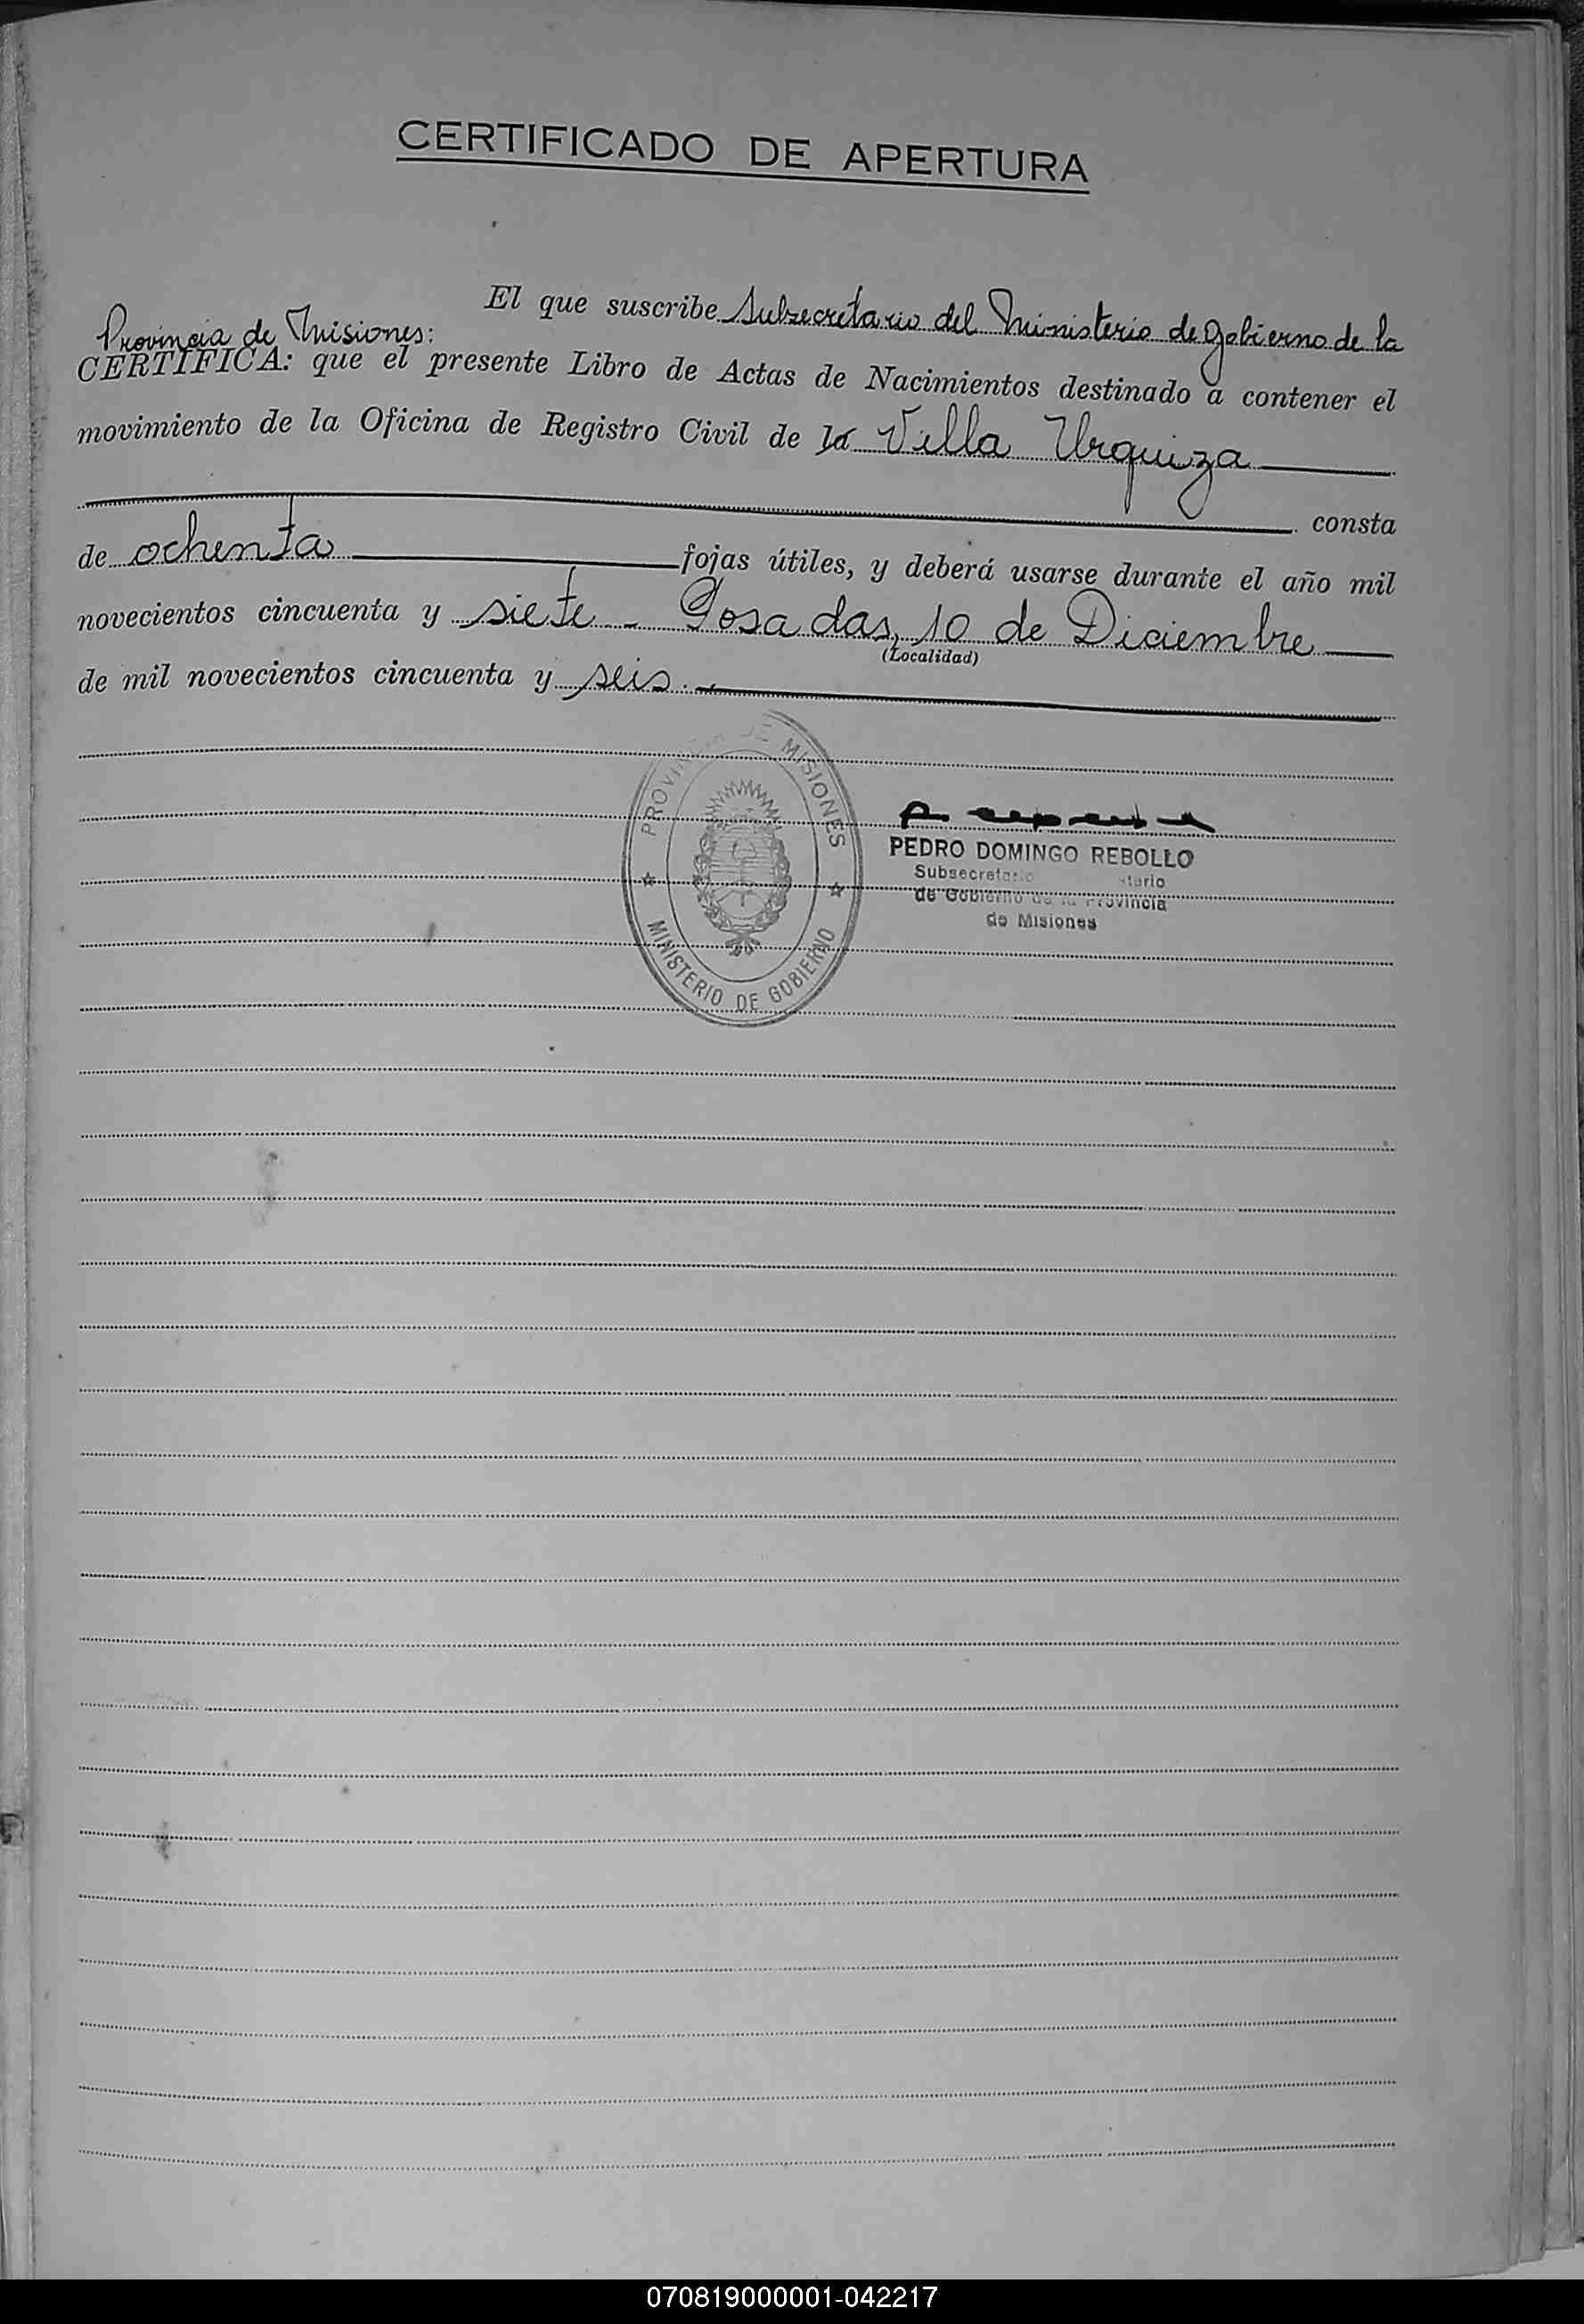 CERTIFICADO DE APERTURA
El que suscribe Subsecretario del Ministerio de Gobierno de la
Provincia de Misiones:
CERTIFICA: que el presente Libro de Actas de Nacimientos destinado a contener el
movimiento de la Oficina de Registro Civil de la Villa Urquiza
consta
de ochenta fojas útiles, y deberá usarse durante el año mil
novecientos cincuenta y siete - Posadas, 10 de Diciembre
(Localidad)
de mil novecientos cincuenta y seis.-
PROVINCIA DE MISIONES
MINISTERIO DE GOBIERNO
PEDRO DOMINGO REBOLLO
Subsecretario
de Gobierno de la Provincia
de Misiones
070819000001-042217